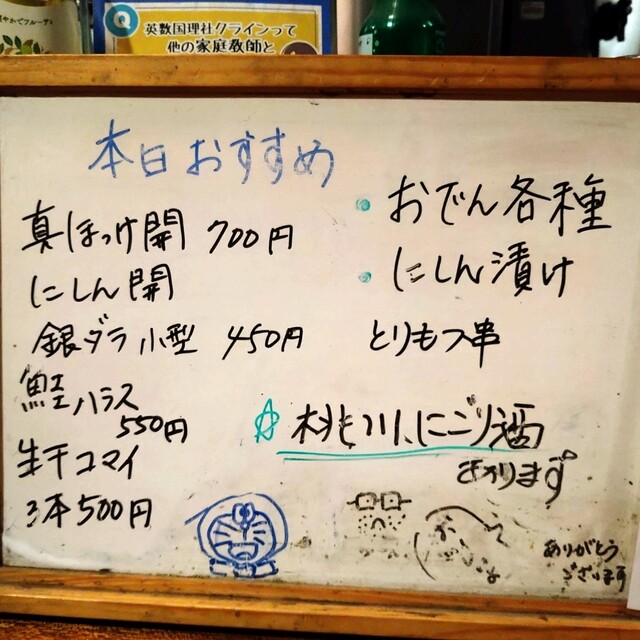 英数国理社クラインって
他の家庭教師と
本日おすすめ
真ほっけ開 700円
にしん開
銀ダラ小型 450円
鮭ハラス
550円
生干コマイ
3本500円
おでん各種
にしん漬け
とりもつ串
桃川、にごり酒
あります
ありがとう
ございます